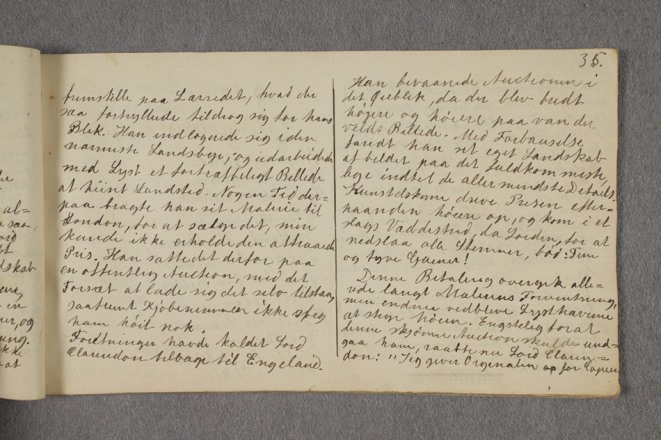 35.
fremstille paa Lærredet, hvad der
saa fortryllede tildrog sig for hans
Blik. Han indlogerede sig i den
nærmeste Landsby, og udarbeidede
med Lyst et fortræffeligt Billede
at hiint Landsted. Nogen Tid der=
paa bragte han sit Malerie til
London, for at sælge det, men
kunde ikke erholde den attraaede
Pris. Han satte det derfor paa
en offentlig Auction, med det
Forsæt at lade sig det selv tilslaa,
saafremt Kjøbesummen ikke steg
ham høit nok.
Foretninger havde kaldet Lord
Clarendon tilbage til Engeland.
Han bivaanede Auctionen i
det Øieblik, da der blev budt
høiere og høiere paa van der
Billede. Med Forbauselse
fandt han sit eget Landskab
afbildet paa det fuldkomneste,
lige indtil de allermindste Details.
Kunstelskerne dreve Prisen efter=
haanden høiere op, og kom i et
slags Væddestrid, da Lorden, for at
nedslaa alle Stemmer, bød: Fem
og tyve Guineer!
Denne Betaling overgik alle=
rede langt Malerens Forventning,
men endnu vedbleve Lysthaverne
at stige høiere. Engstelig for at
denne skjønne Auction skulde und=
gaa ham, raabte nu Lord Claren=
don: "Jeg giver Orginalen for Copien